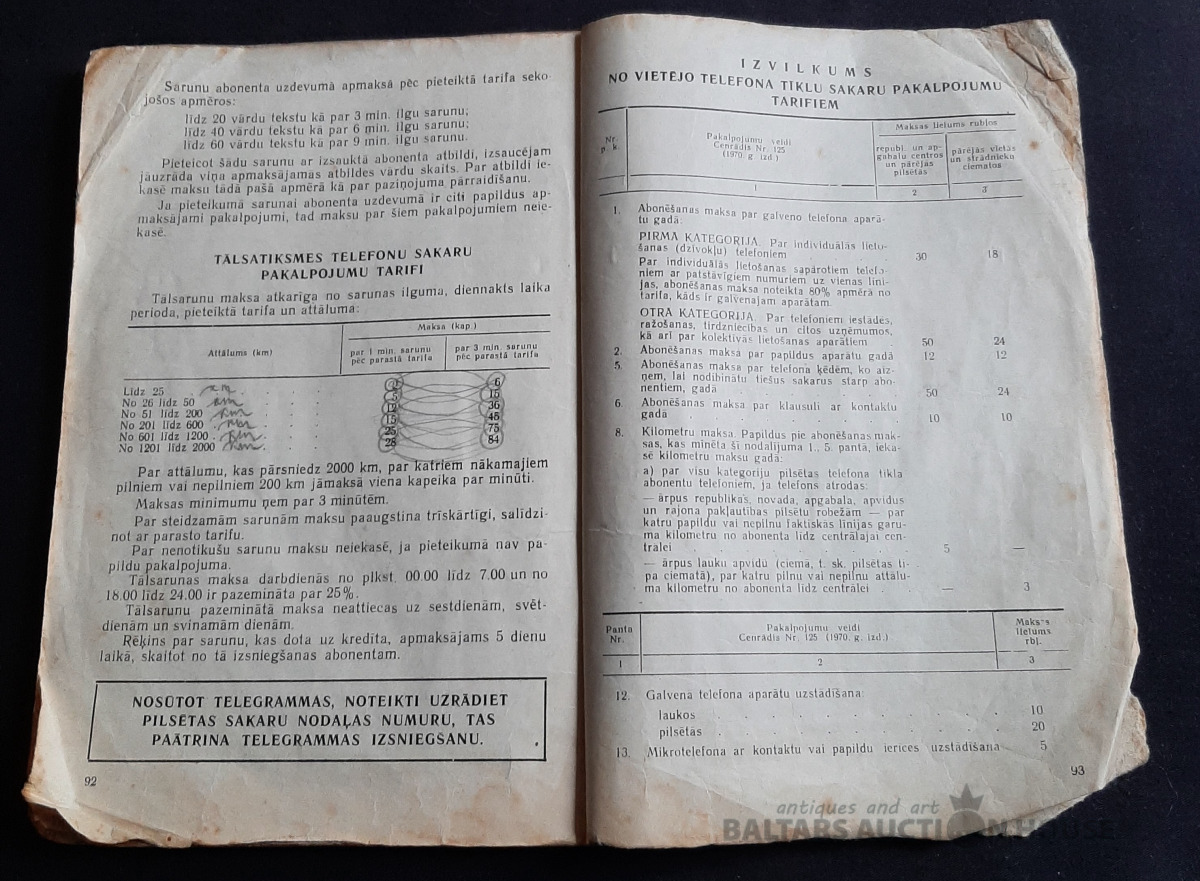 Sarunu abonenta uzdevumā apmaksā pēc pieteiktā tarifa seko-
jošos apmēros:
līdz 20 vārdu tekstu kā par 3 min. ilgu sarunu;
līdz 40 vārdu tekstu kā par 6 min. ilgu sarunu;
līdz 60 vārdu tekstu kā par 9 min. ilgu sarunu.
Pieteicot šādu sarunu ar izsauktā abonenta atbildi, izsaucējam
jāuzrāda viņa apmaksājamās atbildes vārdu skaits. Par atbildi ie-
kasē maksu tādā pašā apmērā kā par paziņojuma pārraidīšanu.
Ja pieteikumā sarunai abonenta uzdevumā ir citi papildus ap-
maksājami pakalpojumi, tad maksu par šiem pakalpojumiem neie-
kasē.
TĀLSATIKSMES TELEFONU SAKARU
PAKALPOJUMU TARIFI
Tālsarunu maksa atkarīga no sarunas ilguma, diennakts laika
perioda, pieteiktā tarifa un attāluma:
Attālums (km)
Maksa (kap.)
par 1 min. sarunu
pēc parastā tarifa
par 3 min. sarunu
pēc parastā tarifa
Līdz 25 km . . . 2 6
No 26 līdz 50 km . . . 5 15
No 51 līdz 200 km . . . 12 36
No 201 līdz 600 . km . . . 15 45
No 601 līdz 1200 . km . . . 25 75
No 1201 līdz 2000 km . . . 28 84
Par attālumu, kas pārsniedz 2000 km, par katriem nākamajiem
pilniem vai nepilniem 200 km jāmaksā viena kapeika par minūti.
Maksas minimumu ņem par 3 minūtēm.
Par steidzamām sarunām maksu paaugstina trīskārtīgi, salīdzi-
not ar parasto tarifu.
Par nenotikušu sarunu maksu neiekasē, ja pieteikumā nav pa-
pildu pakalpojuma.
Tālsarunas maksa darbdienās no plkst. 00.00 līdz 7.00 un no
18.00 līdz 24.00 ir pazemināta par 25%.
Tālsarunu pazeminātā maksa neattiecas uz sestdienām, svēt-
dienām un svinamām dienām.
Rēķins par sarunu, kas dota uz kredīta, apmaksājams 5 dienu
laikā, skaitot no tā izsniegšanas abonentam.
NOSŪTOT TELEGRAMMAS, NOTEIKTI UZRĀDIET
PILSĒTAS SAKARU NODAĻAS NUMURU, TAS
PAĀTRINA TELEGRAMMAS IZSNIEGŠANU.
92
IZVILKUMS
NO VIETĒJO TELEFONA TĪKLU SAKARU PAKALPOJUMU
TARIFIEM
Nr.
p. k.
Pakalpojumu veidi
Cenrādis Nr. 125
(1970. g. izd.)
Maksas lielums rubļos
republ. un ap-
gabalu centros
un pārējās
pilsētās
pārējās vietās
un strādnieku
ciematos
1 2 3
1. Abonēšanas maksa par galveno telefona aparā-
tu gadā:
PIRMĀ KATEGORIJA. Par individuālās lieto-
šanas (dzīvokļu) telefoniem . . . 30 18
Par individuālās lietošanas sapārotiem telefo-
niem ar patstāvīgiem numuriem uz vienas lini-
jas, abonēšanas maksa noteikta 80% apmērā no
tarifa, kāds ir galvenajam aparātam.
OTRĀ KATEGORIJA. Par telefoniem iestādēs,
ražošanas, tirdzniecības un citos uzņēmumos,
kā arī par kolektīvās lietošanas aparātiem . 50 24
2. Abonēšanas maksa par papildus aparātu gadā 12 12
5. Abonēšanas maksa par telefona ķēdēm, ko aiz-
ņem, lai nodibinātu tiešus sakarus starp abo-
nentiem, gadā . . . 50 24
6. Abonēšanas maksa par klausuli ar kontaktu
gadā . . . 10 10
8. Kilometru maksa. Papildus pie abonēšanas mak-
sas, kas minēta šī nodalījuma 1., 5. pantā, ieka-
sē kilometru maksu gadā:
a) par visu kategoriju pilsētas telefona tīkla
abonentu telefoniem, ja telefons atrodas:
— ārpus republikas, novada, apgabala, apvidus
un rajona pakļautības pilsētu robežām — par
katru papildu vai nepilnu faktiskās līnijas garu-
ma kilometru no abonenta līdz centrālajai cen-
trālei . . . 5 —
— ārpus lauku apvidū (ciemā, t. sk. pilsētas ti-
pa ciematā), par katru pilnu vai nepilnu attālu-
ma kilometru no abonenta līdz centrālei . . — 3
Panta
Nr.
Pakalpojumu veidi
Cenrādis Nr. 125 (1970. g. izd.)
Maksas
lielums
rbļ.
1 2 3
12. Galvenā telefona aparātu uzstādīšana:
laukos . . . 10
pilsētās . . . 20
13. Mikrotelefona ar kontaktu vai papildu ierīces uzstādīšana 5
93
antiques and art
BALTARS AUCTION HOUSE